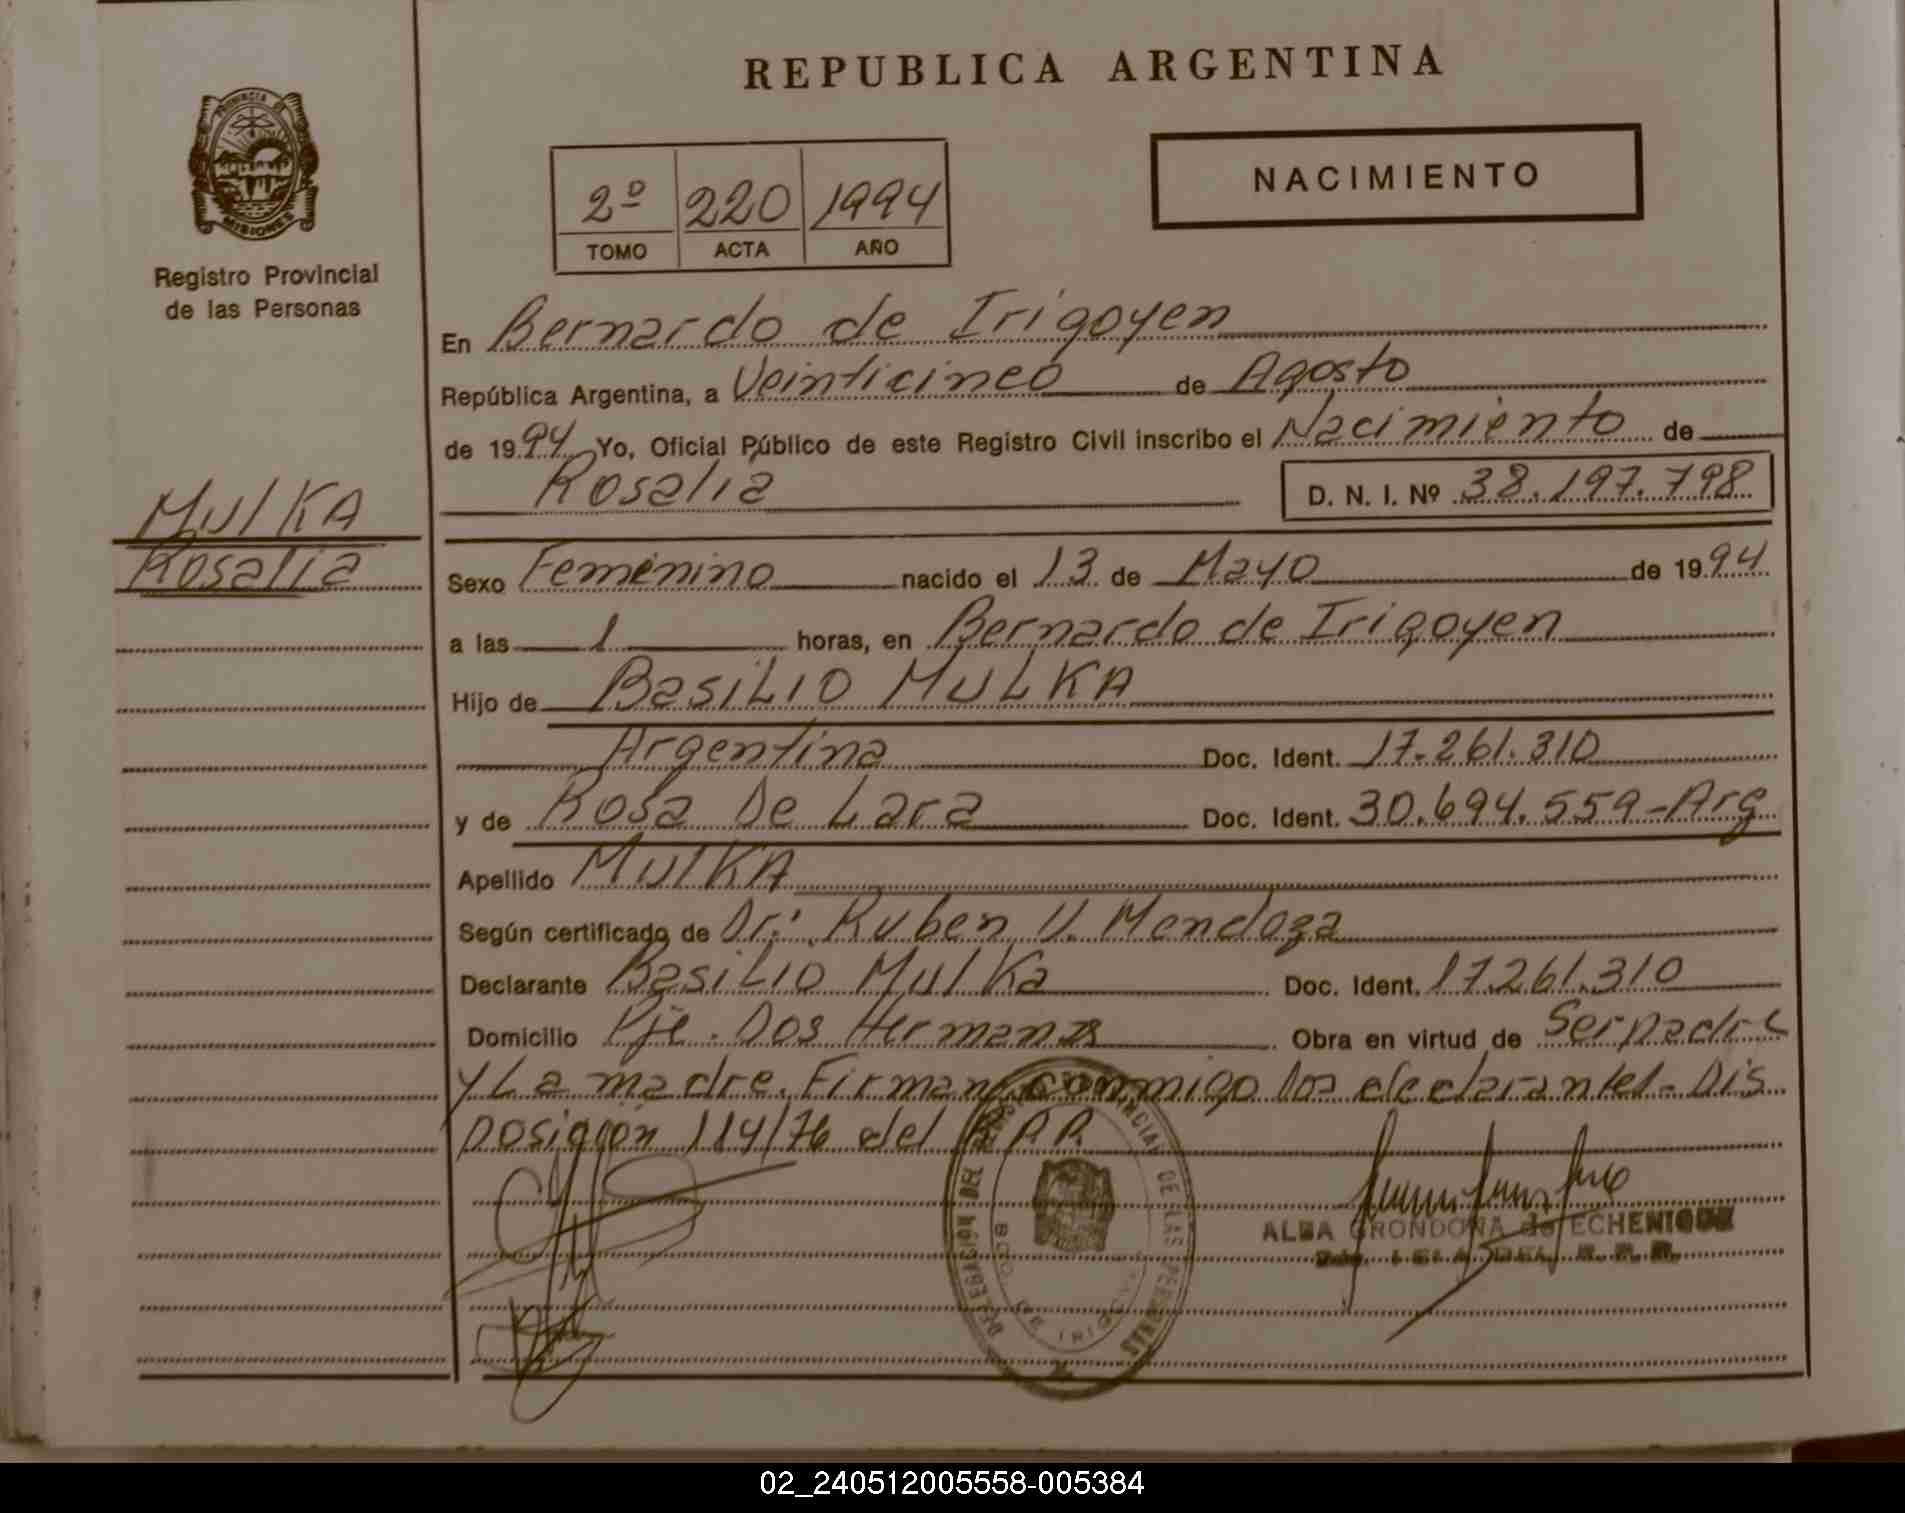 REPUBLICA ARGENTINA
PROVINCIA DE
MISIONES
Registro Provincial
de las Personas
2º 220 1994
TOMO ACTA AÑO
NACIMIENTO
En Bernardo de Irigoyen
República Argentina, a Veinticinco de Agosto
de 1994 Yo, Oficial Público de este Registro Civil inscribo el Nacimiento de
Rosalia D. N. I. Nº 38.197.798
MulKA
Rosalia
Sexo Femenino nacido el 13 de Mayo de 1994
a las 1 horas, en Bernardo de Irigoyen
Hijo de BasiLIO MULKA
Argentina Doc. Ident. 17.261.310
y de Rosa De Lara Doc. Ident. 30.694.559-Arg
Apellido MulKA
Según certificado de Dr: Ruben V. Mendoza
Declarante BasiLIO MulKa Doc. Ident. 17.261.310
Domicilio Pje. Dos Hermanas Obra en virtud de Ser padre
y La madre. Firman conmigo los declarantes. Dis
posición 114/76 del R.P.P.
DELEGACIÓN DEL REGISTRO PROVINCIAL DE LAS PERSONAS
ALBA GRONDONA de ECHENIQUE
R. P. P.
02_240512005558-005384